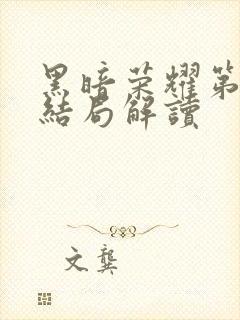 黑暗荣耀第
結局解讀
文龔